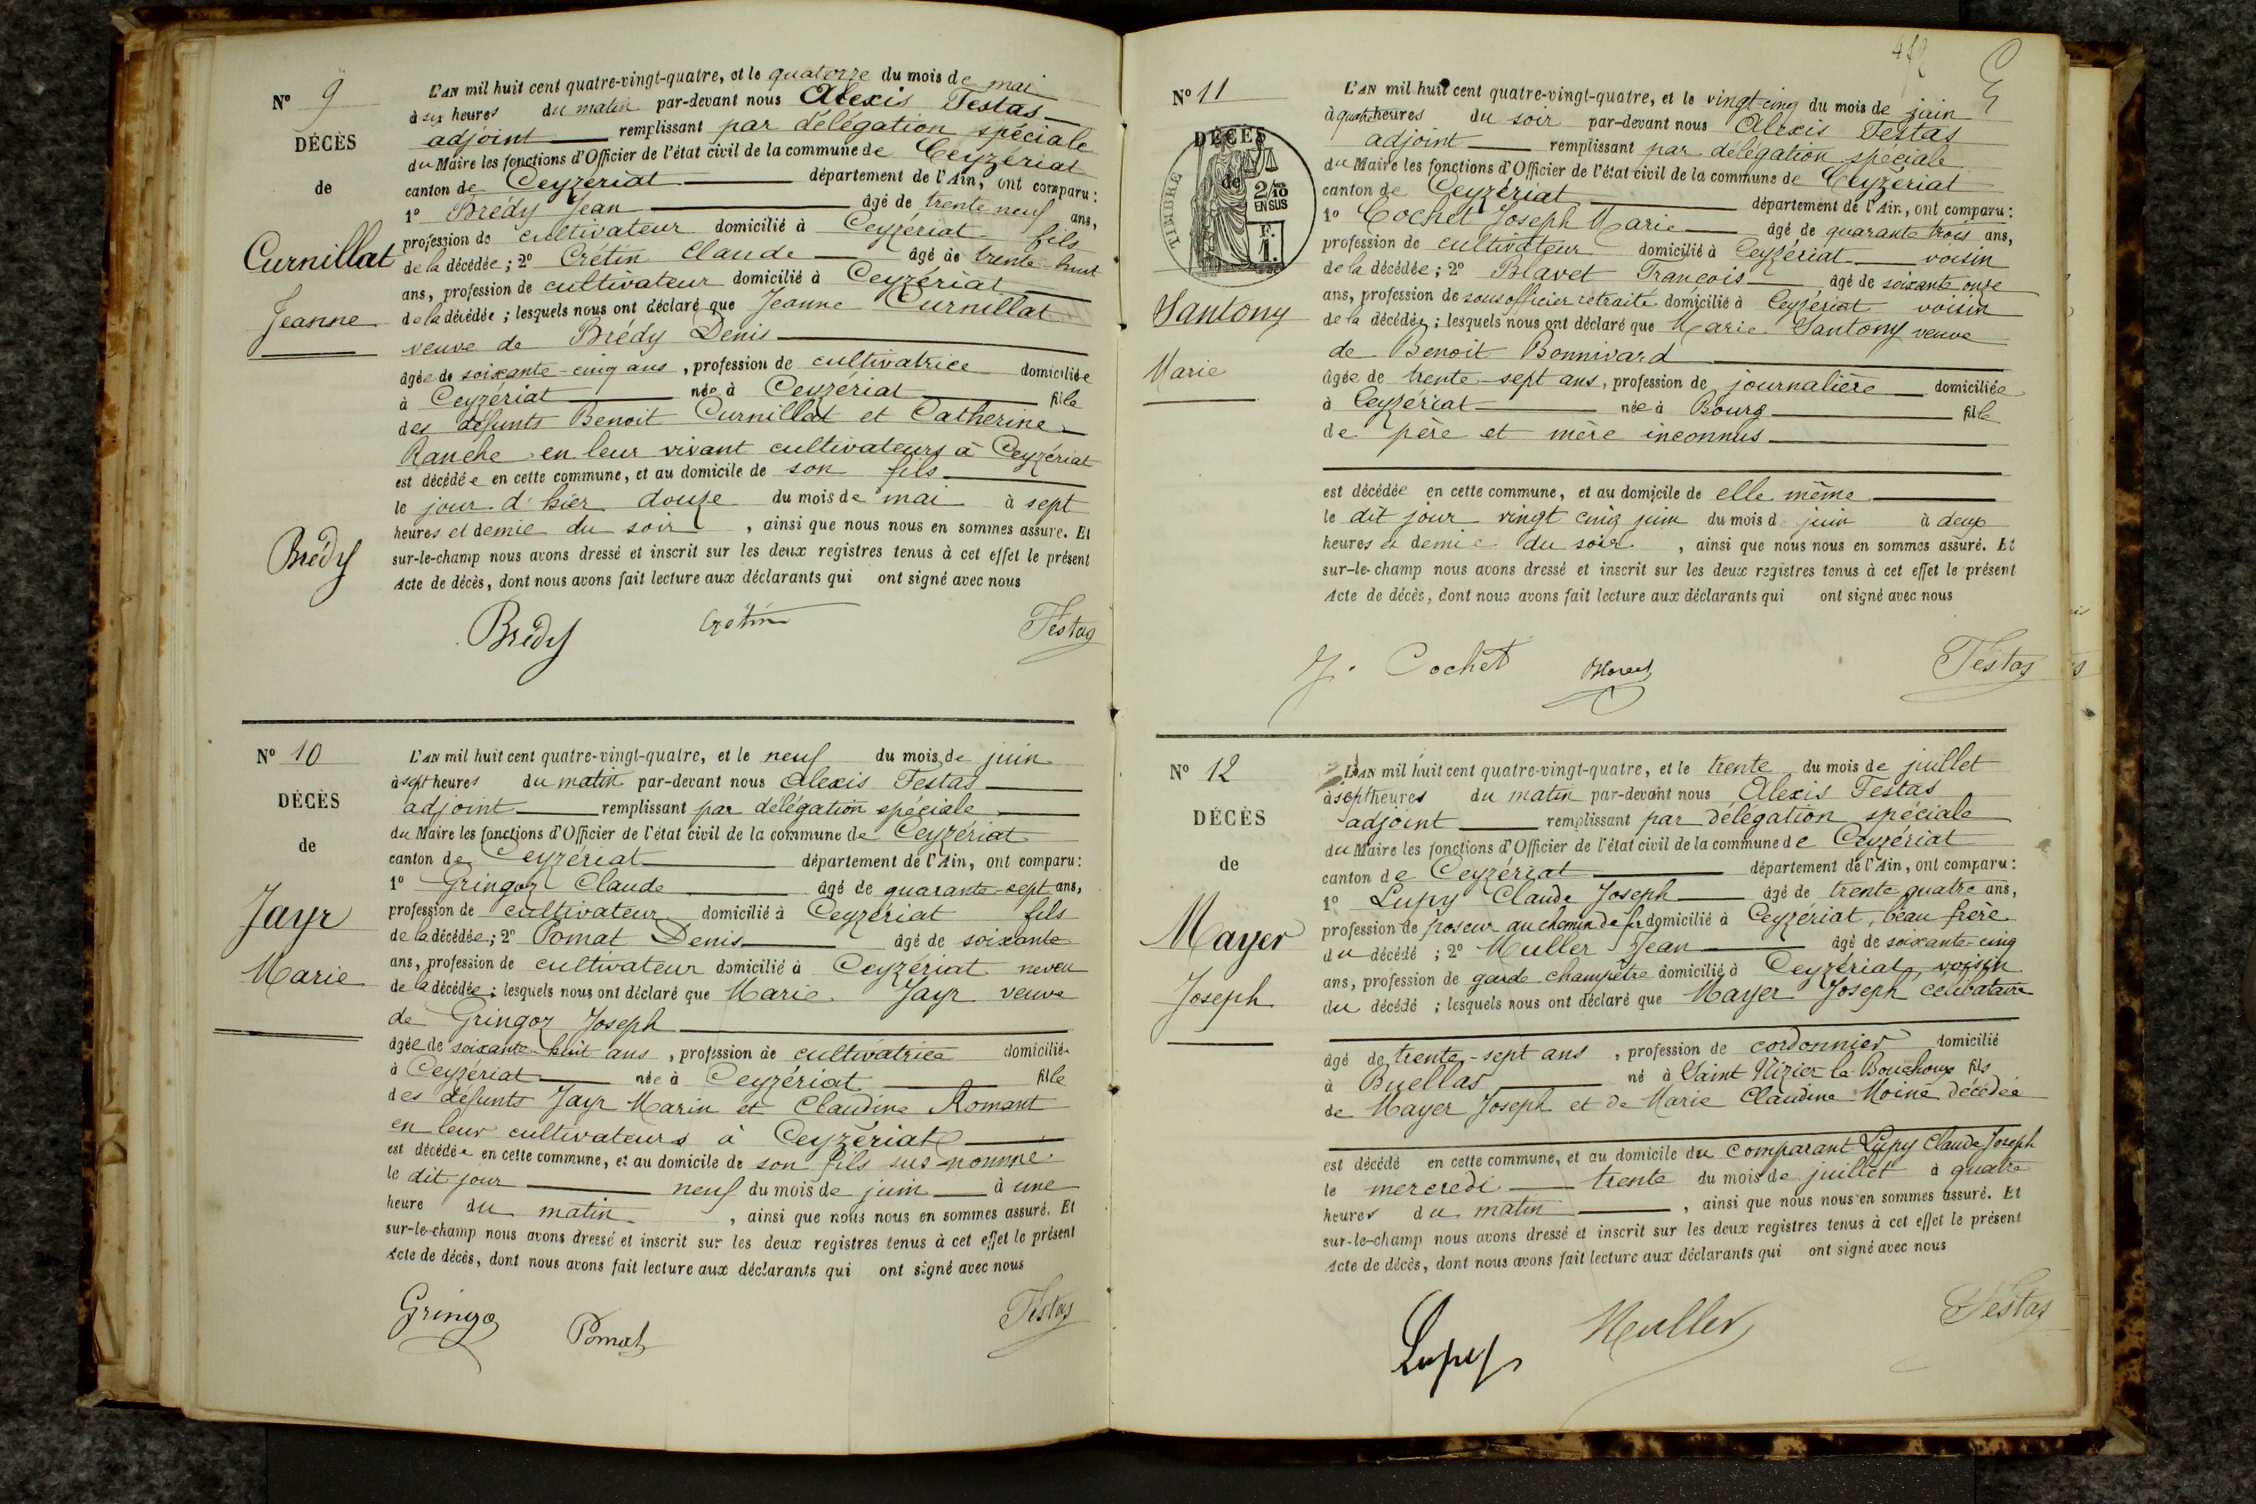 N° 9
DÉCÈS
de
Curnillat
Jeanne
L'AN mil huit cent quatre-vingt-quatre, et le quatorze du mois de mai
à six heures du matin par-devant nous Alexis Festas
adjoint remplissant par délégation spéciale
du Maire les fonctions d'Officier de l'état civil de la commune de Ceyzériat
canton de Ceyzériat département de l'Ain, ont comparu :
1° Brédy Jean âgé de trente neuf ans,
profession de cultivateur domicilié à Ceyzériat fils
de la décédée ; 2° Crétin Claude âgé de trente-huit
ans, profession de cultivateur domicilié à Ceyzériat
de la décédée ; lesquels nous ont déclaré que Jeanne Curnillat
veuve de Brédy Denis
âgée de soixante-cinq ans, profession de cultivatrice domiciliée
à Ceyzériat née à Ceyzériat fille
des défunts Benoit Curnillat et Catherine
Ranche en leur vivant cultivateurs à Ceyzériat
est décédée en cette commune, et au domicile de son fils
le jour d'hier douze du mois de mai à sept
heures et demie du soir, ainsi que nous nous en sommes assuré. Et
sur-le-champ nous avons dressé et inscrit sur les deux registres tenus à cet effet le présent
Acte de décès, dont nous avons fait lecture aux déclarants qui ont signé avec nous
Brédy
Brédy Crétin Festas
N° 10
DÉCÈS
de
Jayr
Marie
L'AN mil huit cent quatre-vingt-quatre, et le neuf du mois de juin
à sept heures du matin par-devant nous Alexis Festas
adjoint remplissant par délégation spéciale
du Maire les fonctions d'Officier de l'état civil de la commune de Ceyzériat
canton de Ceyzériat département de l'Ain, ont comparu :
1° Gringoz Claude âgé de quarante-sept ans,
profession de cultivateur domicilié à Ceyzériat fils
de la décédée ; 2° Pomat Denis âgé de soixante
ans, profession de cultivateur domicilié à Ceyzériat neveu
de la décédée ; lesquels nous ont déclaré que Marie Jayr veuve
de Gringoz Joseph
âgée de soixante-huit ans, profession de cultivatrice domiciliée
à Ceyzériat née à Ceyzériat fille
des défunts Jayr Marin et Claudine Romant
en leur cultivateurs à Ceyzériat
est décédée en cette commune, et au domicile de son fils sus nommé
le dit jour neuf du mois de juin à une
heure du matin, ainsi que nous nous en sommes assuré. Et
sur-le-champ nous avons dressé et inscrit sur les deux registres tenus à cet effet le présent
Acte de décès, dont nous avons fait lecture aux déclarants qui ont signé avec nous
Gringoz Pomat Festas
N° 11
DÉCÈS
de
TIMBRE
2/10
EN SUS
F.
1.
Santony
Marie
L'AN mil huit cent quatre-vingt-quatre, et le vingt-cinq du mois de juin
à quatre heures du soir par-devant nous Alexis Festas
adjoint remplissant par délégation spéciale
du Maire les fonctions d'Officier de l'état civil de la commune de Ceyzériat
canton de Ceyzériat département de l'Ain, ont comparu :
1° Cochet Joseph Marie âgé de quarante trois ans,
profession de cultivateur domicilié à Ceyzériat voisin
de la décédée ; 2° Blavet François âgé de soixante onze
ans, profession de sous officier retraité domicilié à Ceyzériat voisin
de la décédée ; lesquels nous ont déclaré que Marie Santony veuve
de Benoit Bonnivard
âgée de trente-sept ans, profession de journalière domiciliée
à Ceyzériat née à Bourg fille
de père et mère inconnus
est décédée en cette commune, et au domicile de elle même
le dit jour vingt cinq juin du mois d juin à deux
heures et demie du soir, ainsi que nous nous en sommes assuré. Et
sur-le-champ nous avons dressé et inscrit sur les deux registres tenus à cet effet le présent
Acte de décès, dont nous avons fait lecture aux déclarants qui ont signé avec nous
J. Cochet Festas
N° 12
DÉCÈS
de
Mayer
Joseph
L'AN mil huit cent quatre-vingt-quatre, et le trente du mois de juillet
à sept heures du matin par-devant nous Alexis Festas
adjoint remplissant par délégation spéciale
du Maire les fonctions d'Officier de l'état civil de la commune de Ceyzériat
canton de Ceyzériat département de l'Ain, ont comparu :
1° Lupy Claude Joseph âgé de trente quatre ans,
profession de poseur au chemin de fer domicilié à Ceyzériat, beau frère
du décédé ; 2° Muller Jean âgé de soixante-cinq
ans, profession de garde champêtre domicilié à Ceyzériat voisin
du décédé ; lesquels nous ont déclaré que Mayer Joseph célibataire
âgé de trente-sept ans, profession de cordonnier domicilié
à Buellas né à Saint Nizier le Bouchoux fils
de Mayer Joseph et de Marie Claudine Moine décédée
est décédé en cette commune, et au domicile du comparant Lupy Claude Joseph
le mercredi trente du mois de juillet à quatre
heures du matin, ainsi que nous nous en sommes assuré. Et
sur-le-champ nous avons dressé et inscrit sur les deux registres tenus à cet effet le présent
Acte de décès, dont nous avons fait lecture aux déclarants qui ont signé avec nous
Lupy Muller Festas